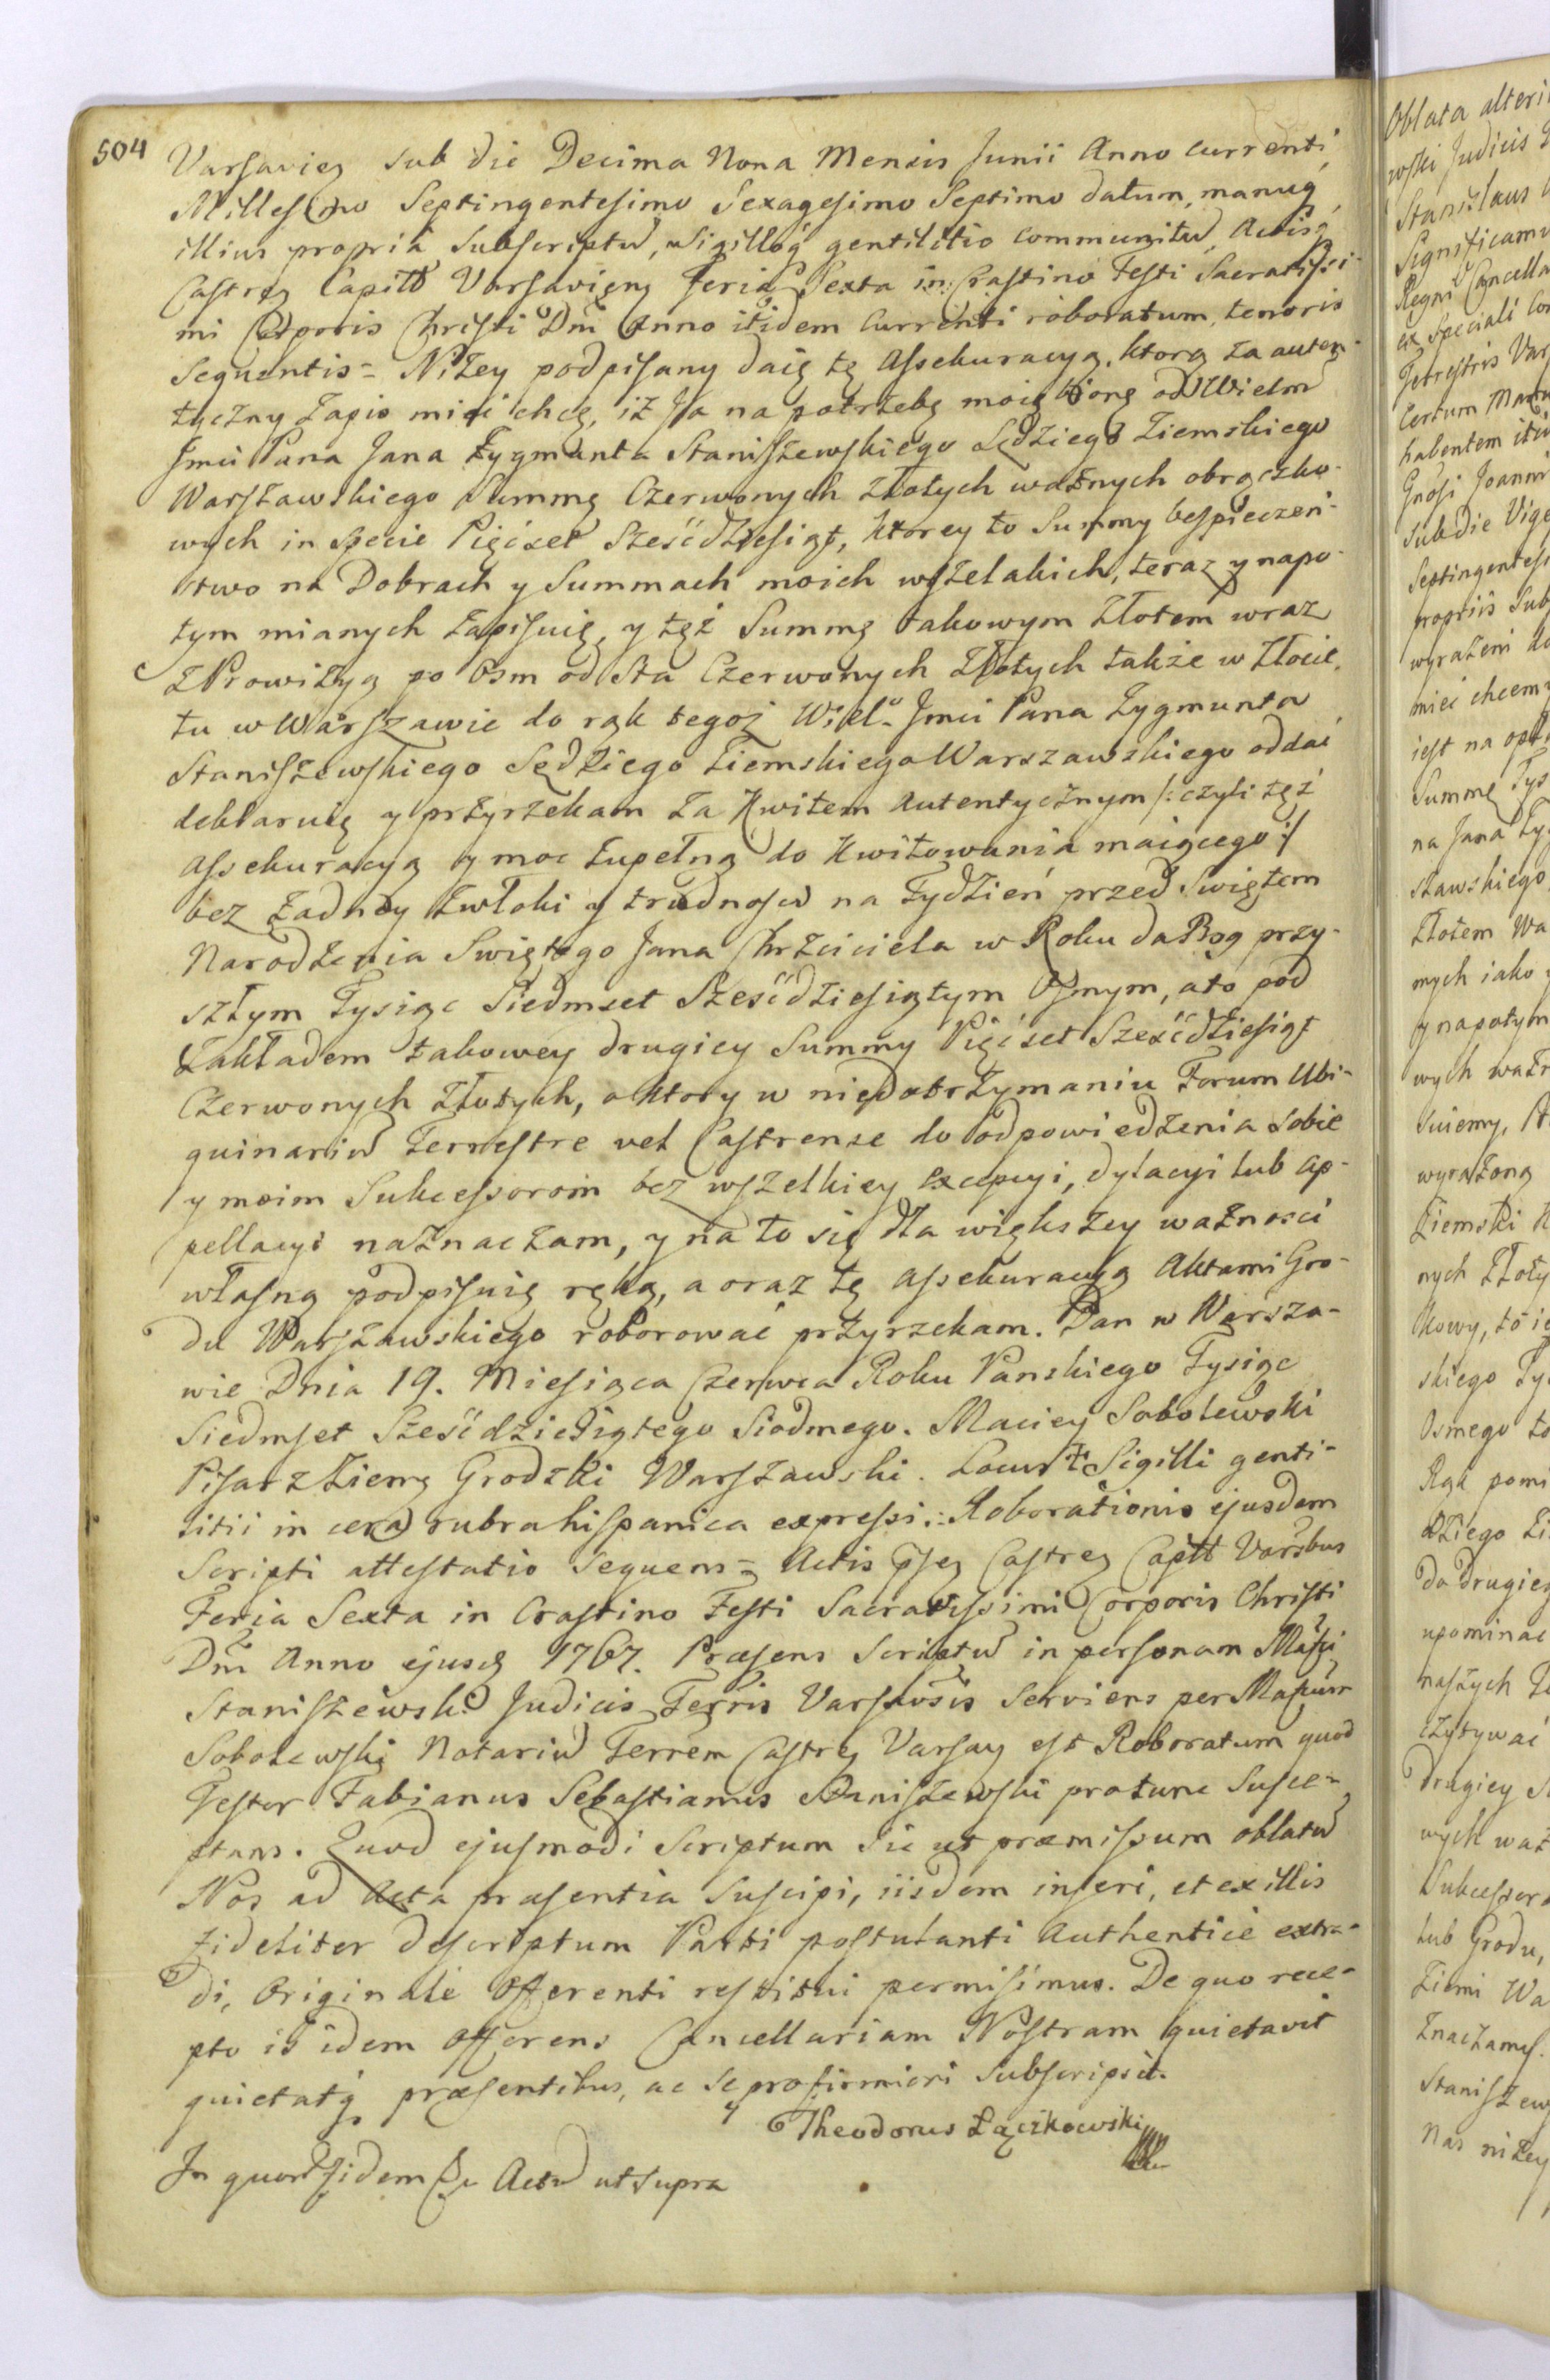 504
Varsaviey sub die Decima Nona Mensis Junii Anno currenti
Millesimo Septingentesimo Sexagesimo Septimo datum, manuq̨
illius propria subscriptū, Sigilloq̨ gentilitio communitū, Actisq̨
Castren Capitł Varsavien Feria Sexta in Crastino Festi Sacratissi-
mi Corporis Christi Dnī Anno itidem Currenti roboratum, tenoris
Sequentis = Niżey podpisany daię tę Assekuracyą, ktorą za auten-
tyczny Zapis mieć chcę, iż Ja na potrzebę moię biorę od Wielm̄
Jmci Pana Jana Zygmunta Staniszewskiego Sędziego Ziemskiego
Warszawskiego Summę Czerwonych Złotych ważnych obrączko-
wych in specie Pięćset Sześćdziesiąt, ktorey to Summy bespieczeń-
stwo na Dobrach y Summach moich wszelakich, teraz y napo-
tym mianych zapisuię, y tęż Summę takowym Złotem wraz
z Prowizyą po Osm od Sta Czerwonych Złotych także w Złocie,
tu w Warszawie do rąk tegoż Wiel: Jmci Pana Zygmunta
Staniszewskiego Sędziego Ziemskiego Warszawskiego oddać
deklaruię y przyrzekam za Kwitem Autentycznym /: czyli tęż
Assekuracyą y moc zupełną do Kwitowania maiącego :/
bez żadney zwłoki y trudności na Tydzień przed Swiętem
Narodzenia Swiętego Jana Chrzciciela w Roku da Bog przy-
szłym Tysiąc Siedmset Sześćdziesiątym Osmym, a to pod
Zakładem takowey drugiey Summy Pięćset Sześćdziesiąt
Czerwonych Złotych, o ktory w niedotrzymaniu Forum Ubi-
quinariū Terrestre vel Castrense do odpowiedzenia sobie
y moim Sukcessorom bez wszelkiey excepcyi, dylacyi lub ap-
pellacyi naznaczam, y na to się dla większey ważności
własną podpisuię ręką, a oraz tę Assekuracyą Aktami Gro-
du Warszawskiego roborować przyrzekam. Dan w Warsza-
wie Dnia 19. Miesiąca Czerwca Roku Panskiego Tysiąc
Siedmset Sześćdziesiątego Siodmego. Maciey Sobolewski
Pisarz Ziems Grodzki Warszawski. Locus Sigilli genti-
litii in cera rubra hispanica expressi :. Roborationis ejusdem
Scripti attestatio Sequens = Actis Castren Captł Varsbus
Feria Sexta in Crastino Festi Sacratissimi Corporis Christi
Dnī Anno ejusq̨ 1767. Præsens Scriptū in personam
Staniszewski Judicis Terris Varsavsis Serviens per
Sobolewski Notariū Terrem Castren Varsav est Roboratum quod
Testor Fabianus Sebastianus Staniszewski protunc Susce-
ptans. Quod ejusmodi Scriptum Sic ut præmissum oblatū
Nos ad Acta præsentia Suscipi, iisdem inseri, et ex illis
fideliter descriptum Parti postulanti Authenticè extra-
di, Originale Offerenti restitui permisimus. De quo rece-
pto is idem Offerens Cancellariam Nostram quietavit
quietatq̨ præsentibus, ac Se pro firmiori Subscripsit.
Theodorus Łączkowski
In quorū fidem Actū ut supra
Oblata alteri
wski Judicis
Stanislaus
Significamu
Regni Cancella
ex Speciali Con
Terrestris Var
Certum
habentem
Gnosi Joanni
sub die Vige
Septingentesi
propriis Sub
wyrażeni
mieć chcemy
iest na
Summę Tys
na Jana Zyg
szawskiego
Złotem Wa
mych iako
y napotym
wych ważn
suiemy,
wyrażoną
Ziemski
nych Złoty
kowy, to ie
skiego Ty
Osmego to
Rąk pomi
dziego Zi
do drugiey
upominac
naszych
czytywać
drugiey S
wych waż
Sukcessor
lub Grodu,
Ziemi Wa
znaczamy.
Staniszew
Nas niżey